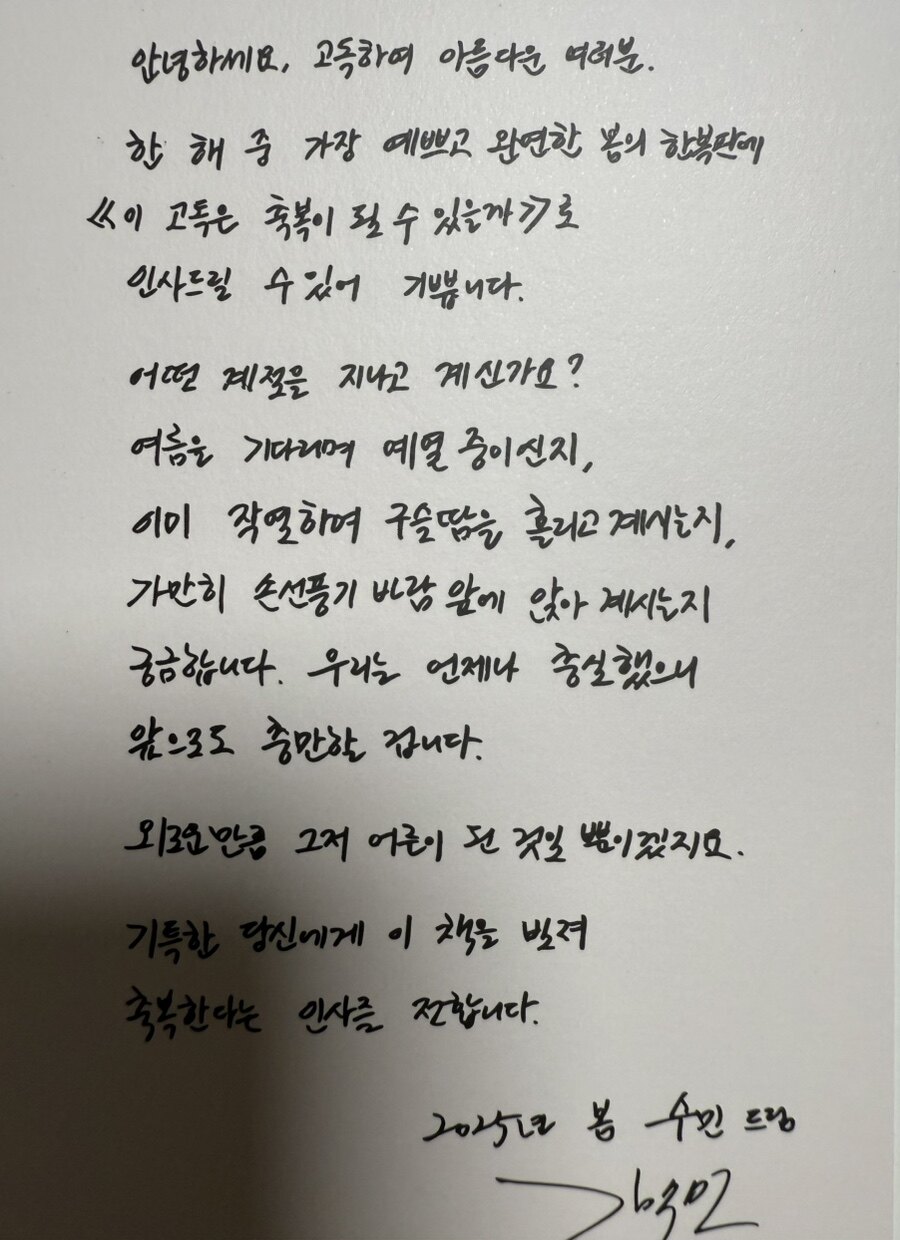 안녕하세요, 고독하여 아름다운 여러분.
한 해 중 가장 예쁘고 완연한 봄의 한복판에
《이 고독은 축복이 될 수 있을까》로
인사드릴 수 있어 기쁩니다.
어떤 계절을 지나고 계신가요?
여름을 기다리며 예열 중이신지,
이미 작열하여 구슬땀을 흘리고 계시는지,
가만히 손선풍기 바람 앞에 앉아 계시는지
궁금합니다. 우리는 언제나 충실했으니
앞으로도 충만할 겁니다.
외로운만큼 그저 어른이 된 것일 뿐이겠지요.
기특한 당신에게 이 책을 빌려
축복한다는 인사를 전합니다.
2025년 봄 수민 드림